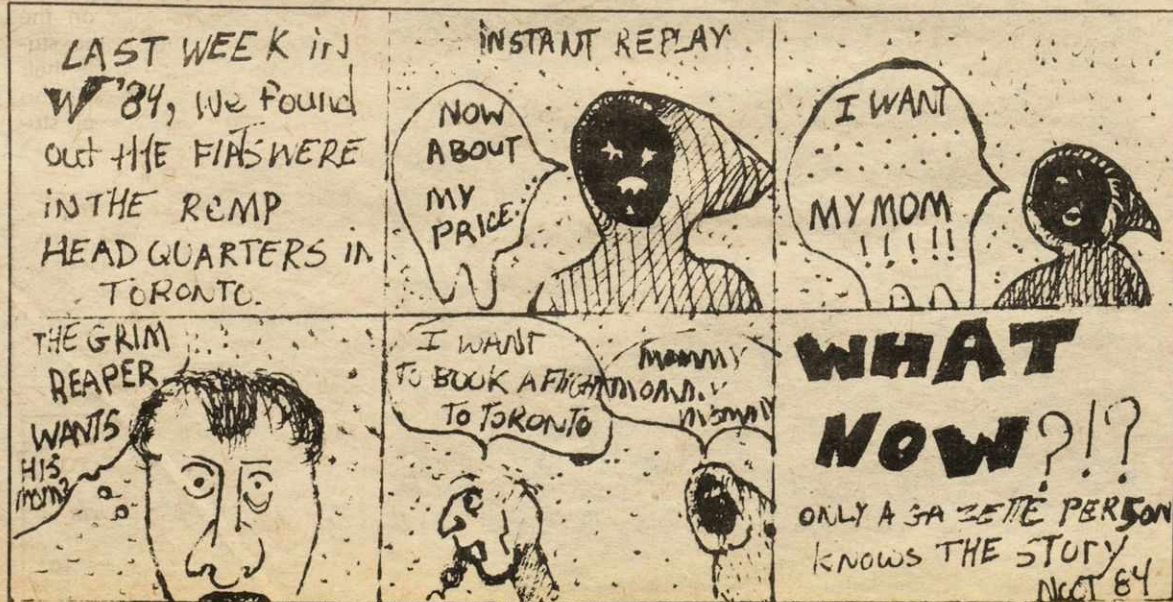 LAST WEEK in
W '84, we found
out tHE FIATS WERE
iN THE RCMP
HEAD QUARTERS iN
TORONTO.
iNSTANT REPLAY
NOW
ABOUT
MY
PRICE...
I WANT
MY MOM
!!!!!
THE GRIM
REAPER
WANTS
HIS
mom?
I WANT
TO BOOK A FLIGHT
TO TORONTO
mommy
mommy
mommy
WHAT
NOW?!?
ONLY A GAZETTE PERSON
KNOWS THE STORY
84